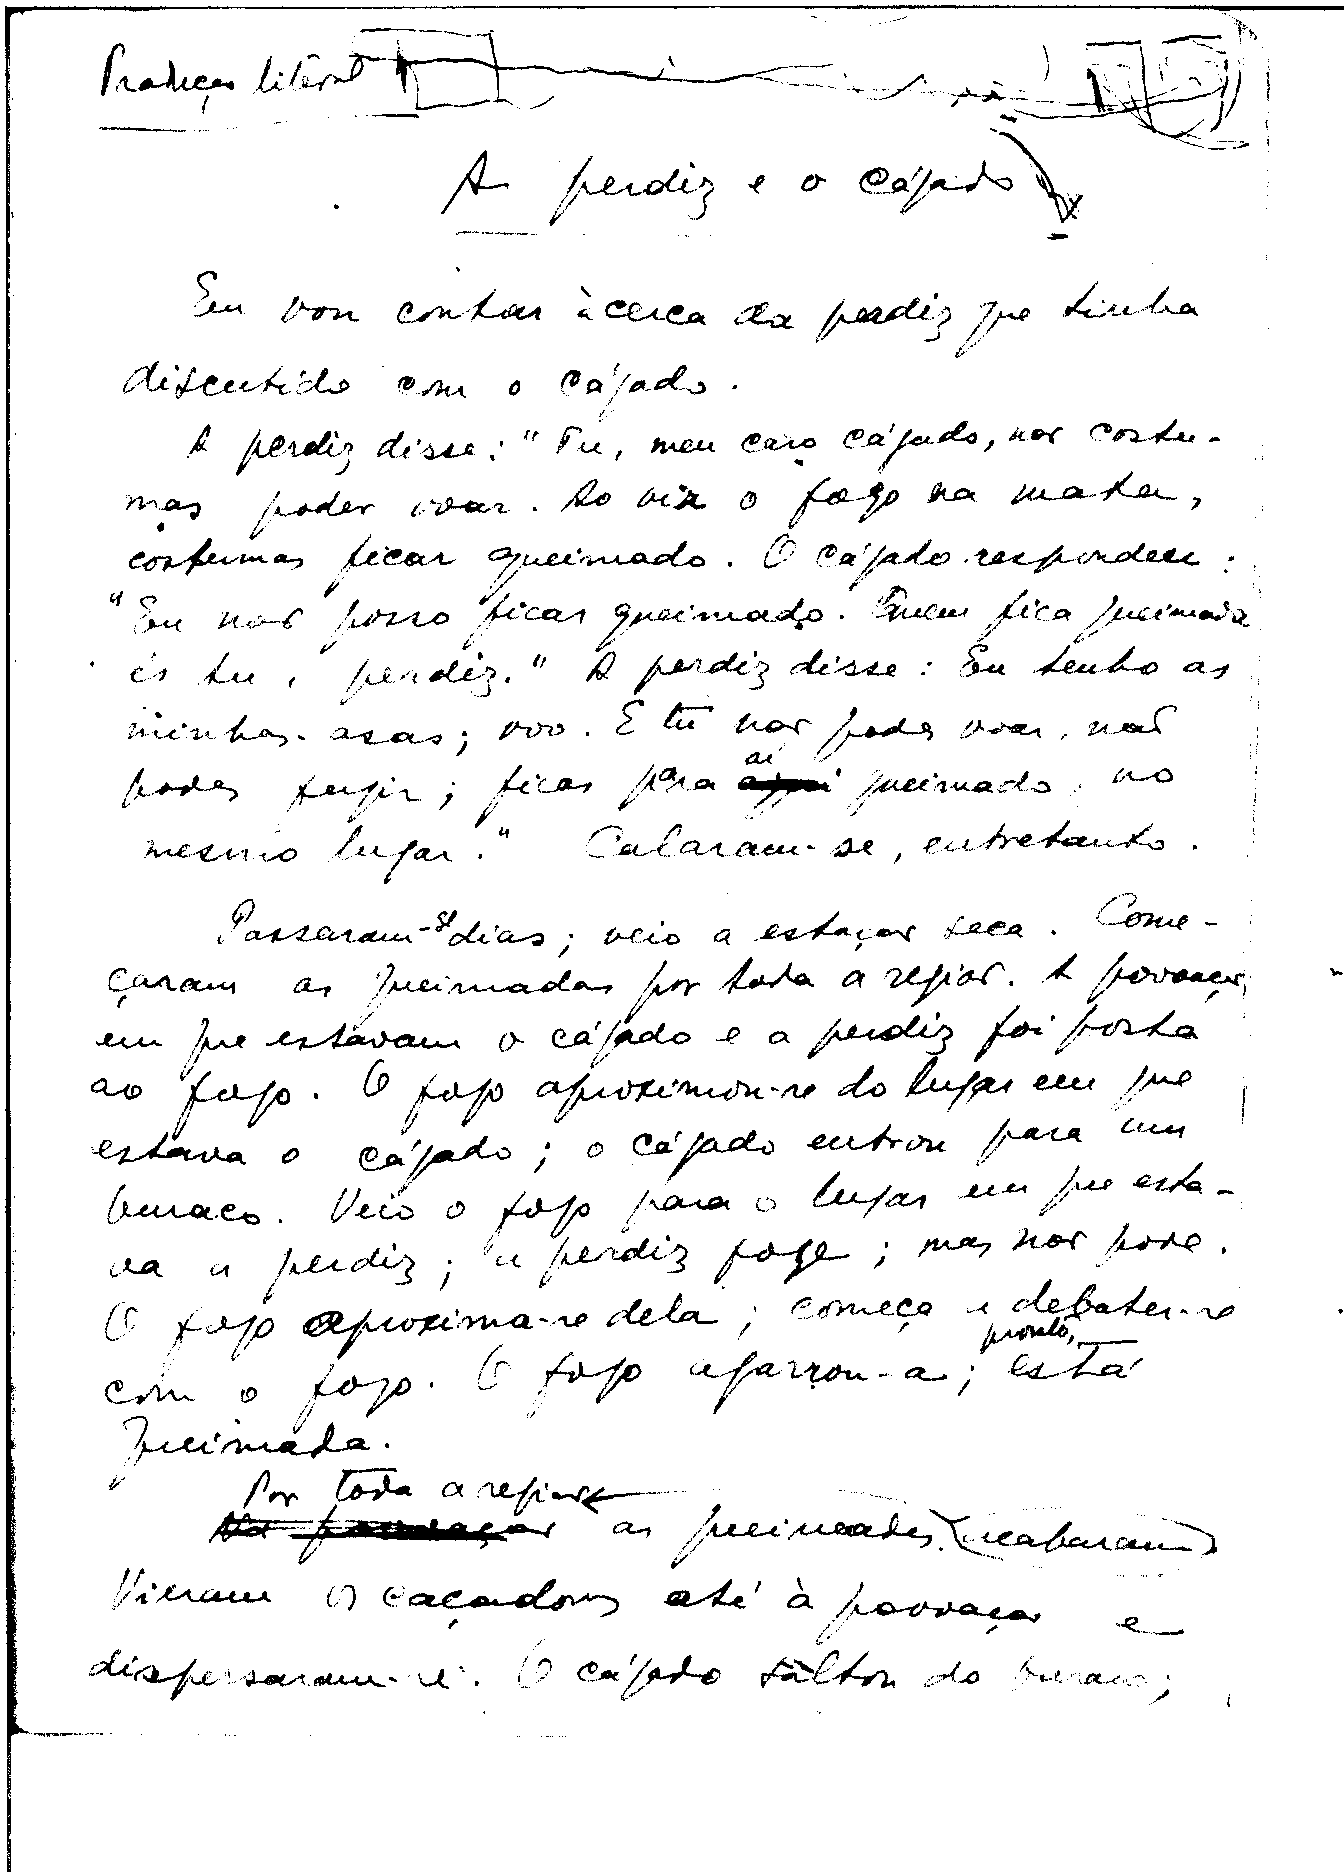 Tradução literal
A perdiz e o cágado
Eu vou contar àcerca da perdiz que tinha
discutido com o cágado.
A perdiz disse: "Tu, meu caro cágado, não costu-
mas poder voar. Ao vir o fogo na mata,
costumas ficar queimado. O cágado respondeu:
"Eu não posso ficar queimado. Quem fica queimada
és tu, perdiz." A perdiz disse: Eu tenho as
minhas asas; voo. E tu não podes voar, não
podes fugir; ficas para aí queimado, no
mesmo lugar." Calaram-se, entretanto.
Passaram-se dias; veio a estação seca. Come-
çaram as queimadas por toda a região. A povoação
em que estavam o cágado e a perdiz foi posta
ao fogo. O fogo aproximou-se do lugar em que
estava o cágado; o cágado entrou para um
buraco. Veio o fogo para o lugar em que esta-
va a perdiz; a perdiz foge; mas não pode.
O fogo aproxima-se dela; começa a debater-se
com o fogo. O fogo agarrou-a; pronto, está
queimada.
Por toda a região as queimadas acabaram
Vieram os caçadores até à povoação e
dispersaram-se. O cágado saltou do buraco;